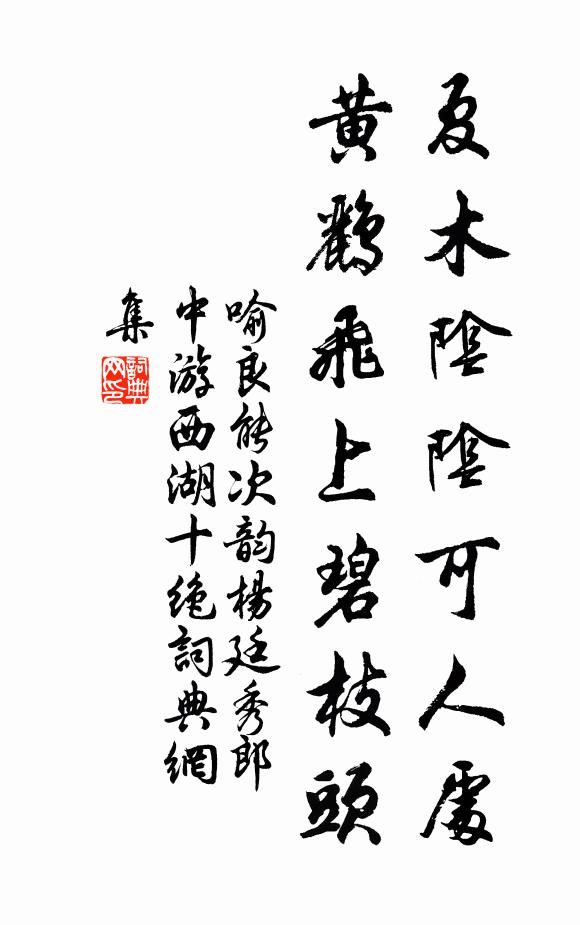 夏木陰陰可人處
黃鸝飛上碧枝頭
喻良能次韵楊廷秀郎
中游西湖十絶詞典網
集
詞典
网印